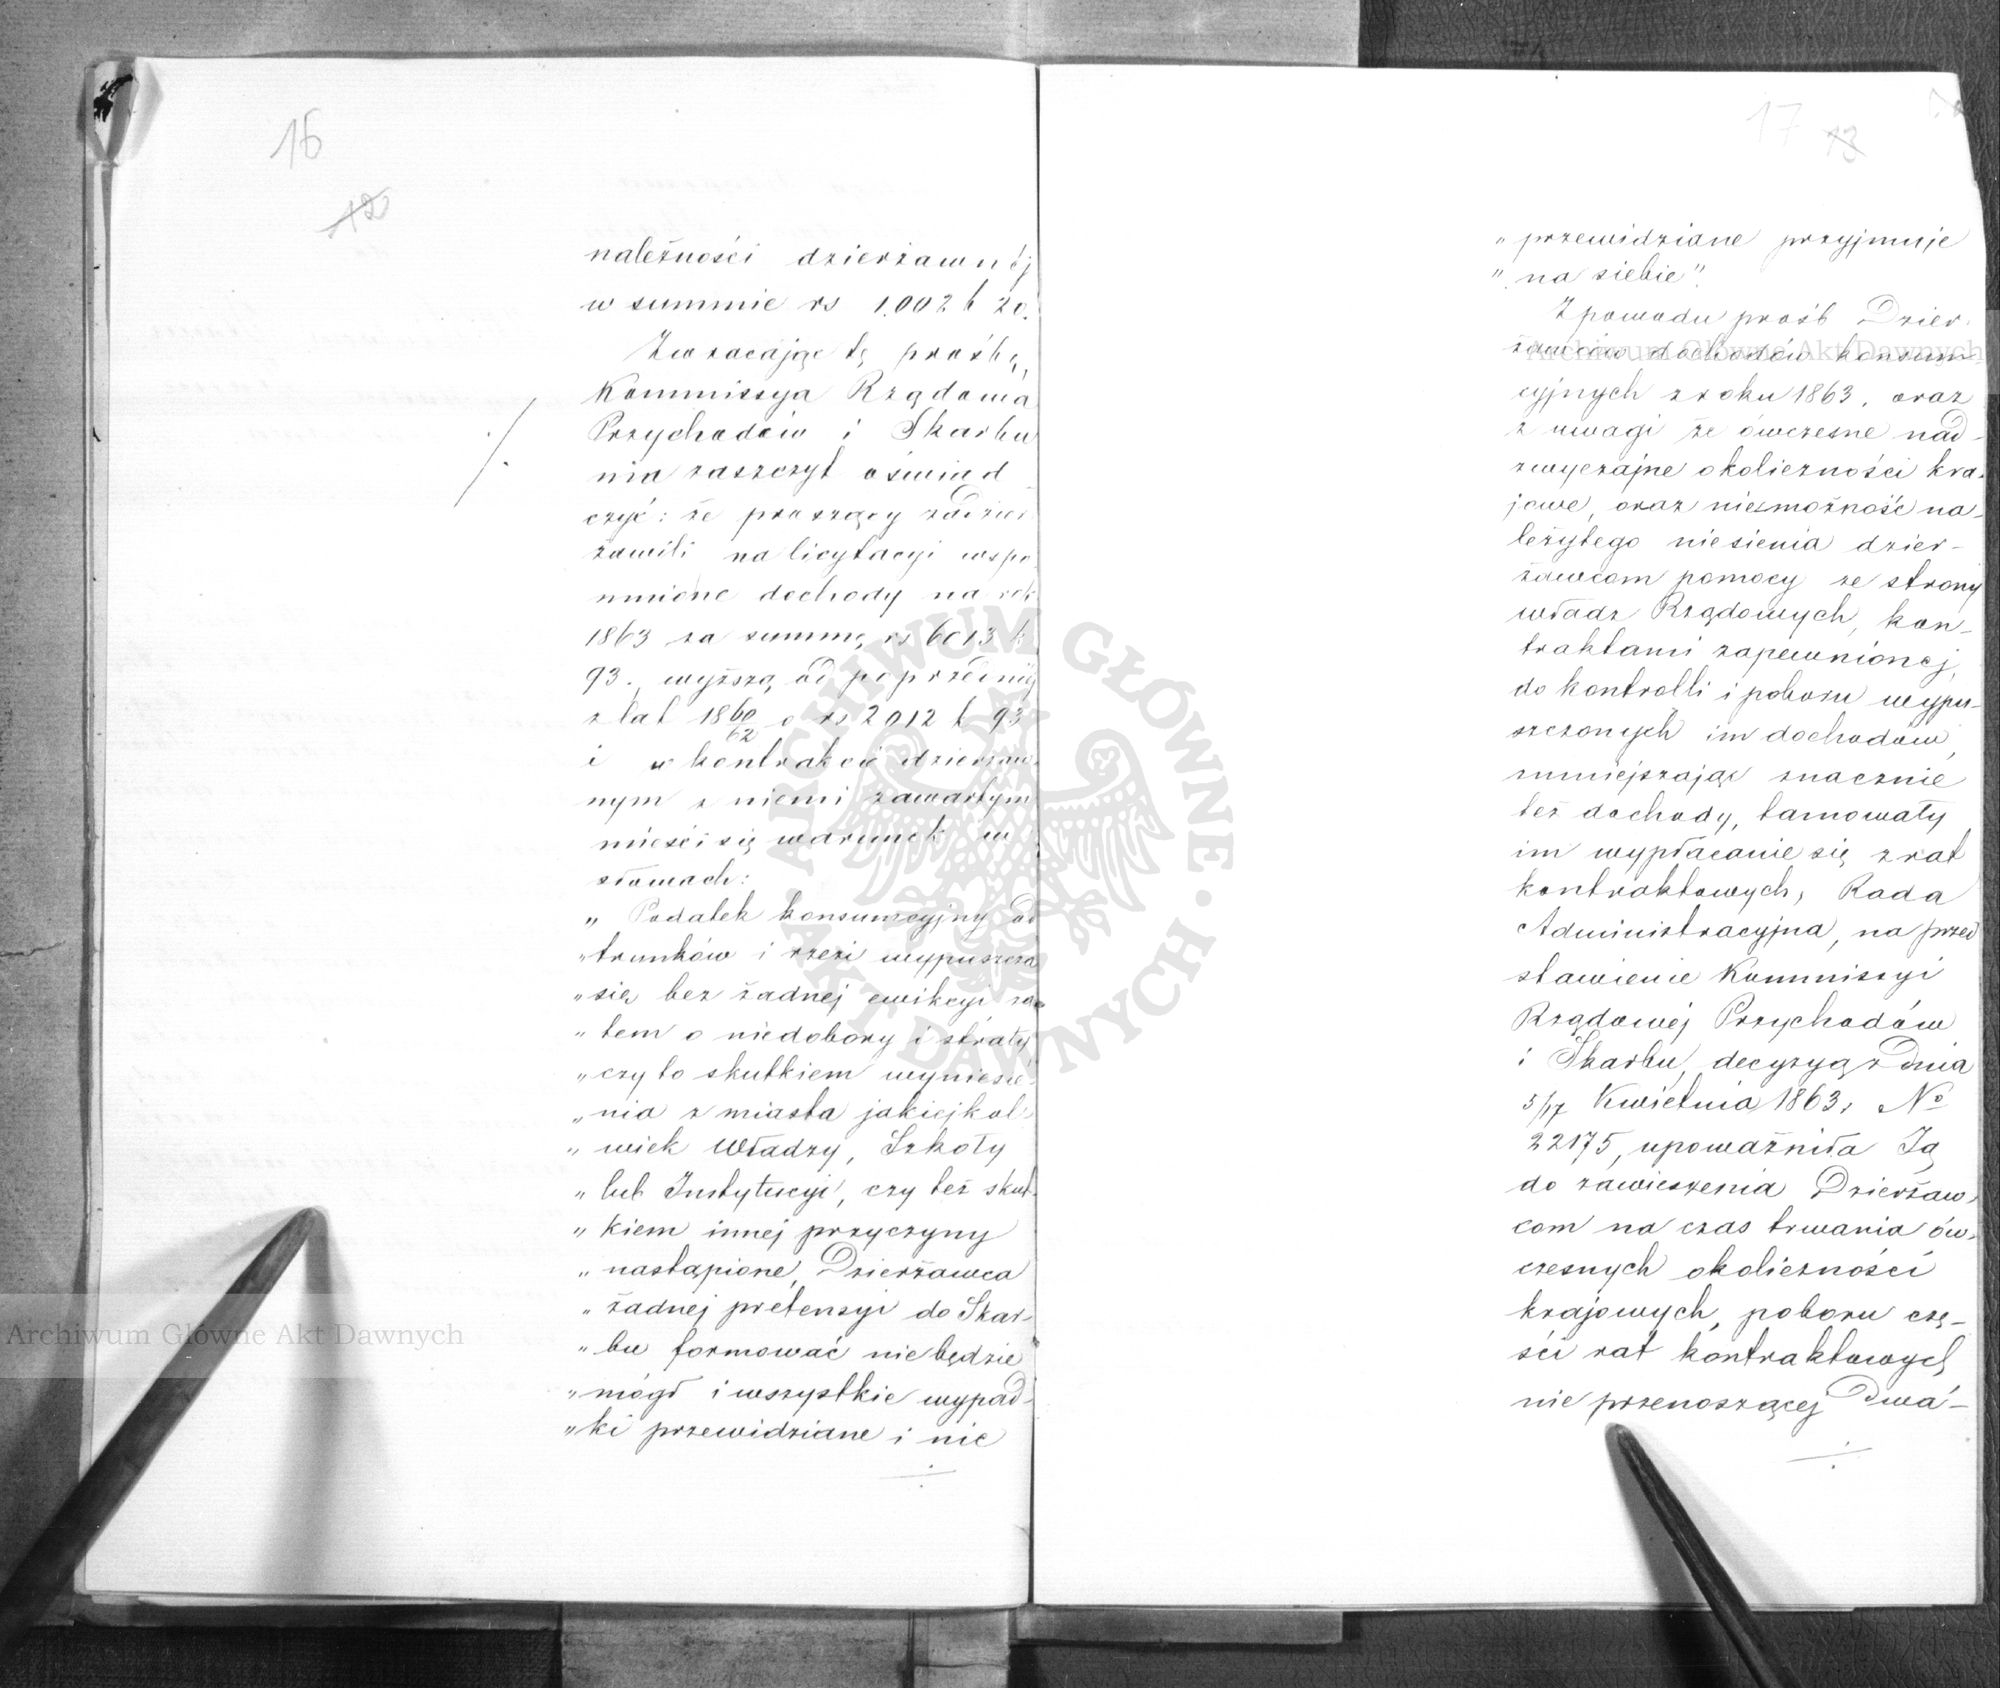 16
12
należności dzierżawnéj
w summie rs 1.002 k 20.
Zwracając tę prośbę,
Kommissya Rządowa
Przychodów i Skarbu
ma zaszczyt oświad
czyć: że proszący zadzier
żawili na licytacyi wspo
mnione dochody na rok
1863 za summę rs 6013 k
93. wyższą od poprzedniej
z lat 1860/62 o rs 2012 k 93
i w kontrakcie dzierżaw
nym z niemi zawartym
mieści się warunek w
słowach:
„ Podatek konsumcyjny od
„ trunków i rzezi wypuszcza
„ się bez żadnej ewikcyi za
„ tem o niedobory i straty
„ czy to skutkiem wyniesie
„ nia z miasta jakiejkol
„ wiek Władzy, Szkoły
„ lub Instytucyi, czy też skut
„ kiem innej przyczyny
„ nastąpione, Dzierżawca
„ żadnej pretensyi do Skar-
„ bu formować nie będzie
„ mógł i wszystkie wypad-
„ ki przewidziane i nie
17
13
„ przewidziane przyjmuje
„ na siebie".
Z powodu prośb Dzier-
żawców dochodów konsum-
cyjnych z roku 1863. oraz
z uwagi że ówczesne nad-
zwyczajne okoliczności kra-
jowe, oraz niemożność na-
leżytego niesienia dzier-
żawcom pomocy ze strony
władz Rządowych, kon-
traktami zapewnionej,
do kontrolli i poboru wypu-
szczonych im dochodów,
zmniejszając znacznie
też dochody, tamowały
im wypłacanie się z rat
kontraktowych, Rada
Administracyjna, na przed
stawienie Kommissyi
Rządowéj Przychodów
i Skarbu, decyzyą z Dnia
5/17 Kwietnia 1863, No
22175, upoważniła Ją
do zawieszenia Dzierżaw-
com na czas trwania ów-
czesnych okoliczności
krajowych, poboru czę-
ści rat kontraktowych
nie przenoszącej Dwa-
ARCHIWUM GŁÓWNE AKT DAWNYCH
Archiwum Główne Akt Dawnych
Archiwum Główne Akt Dawnych